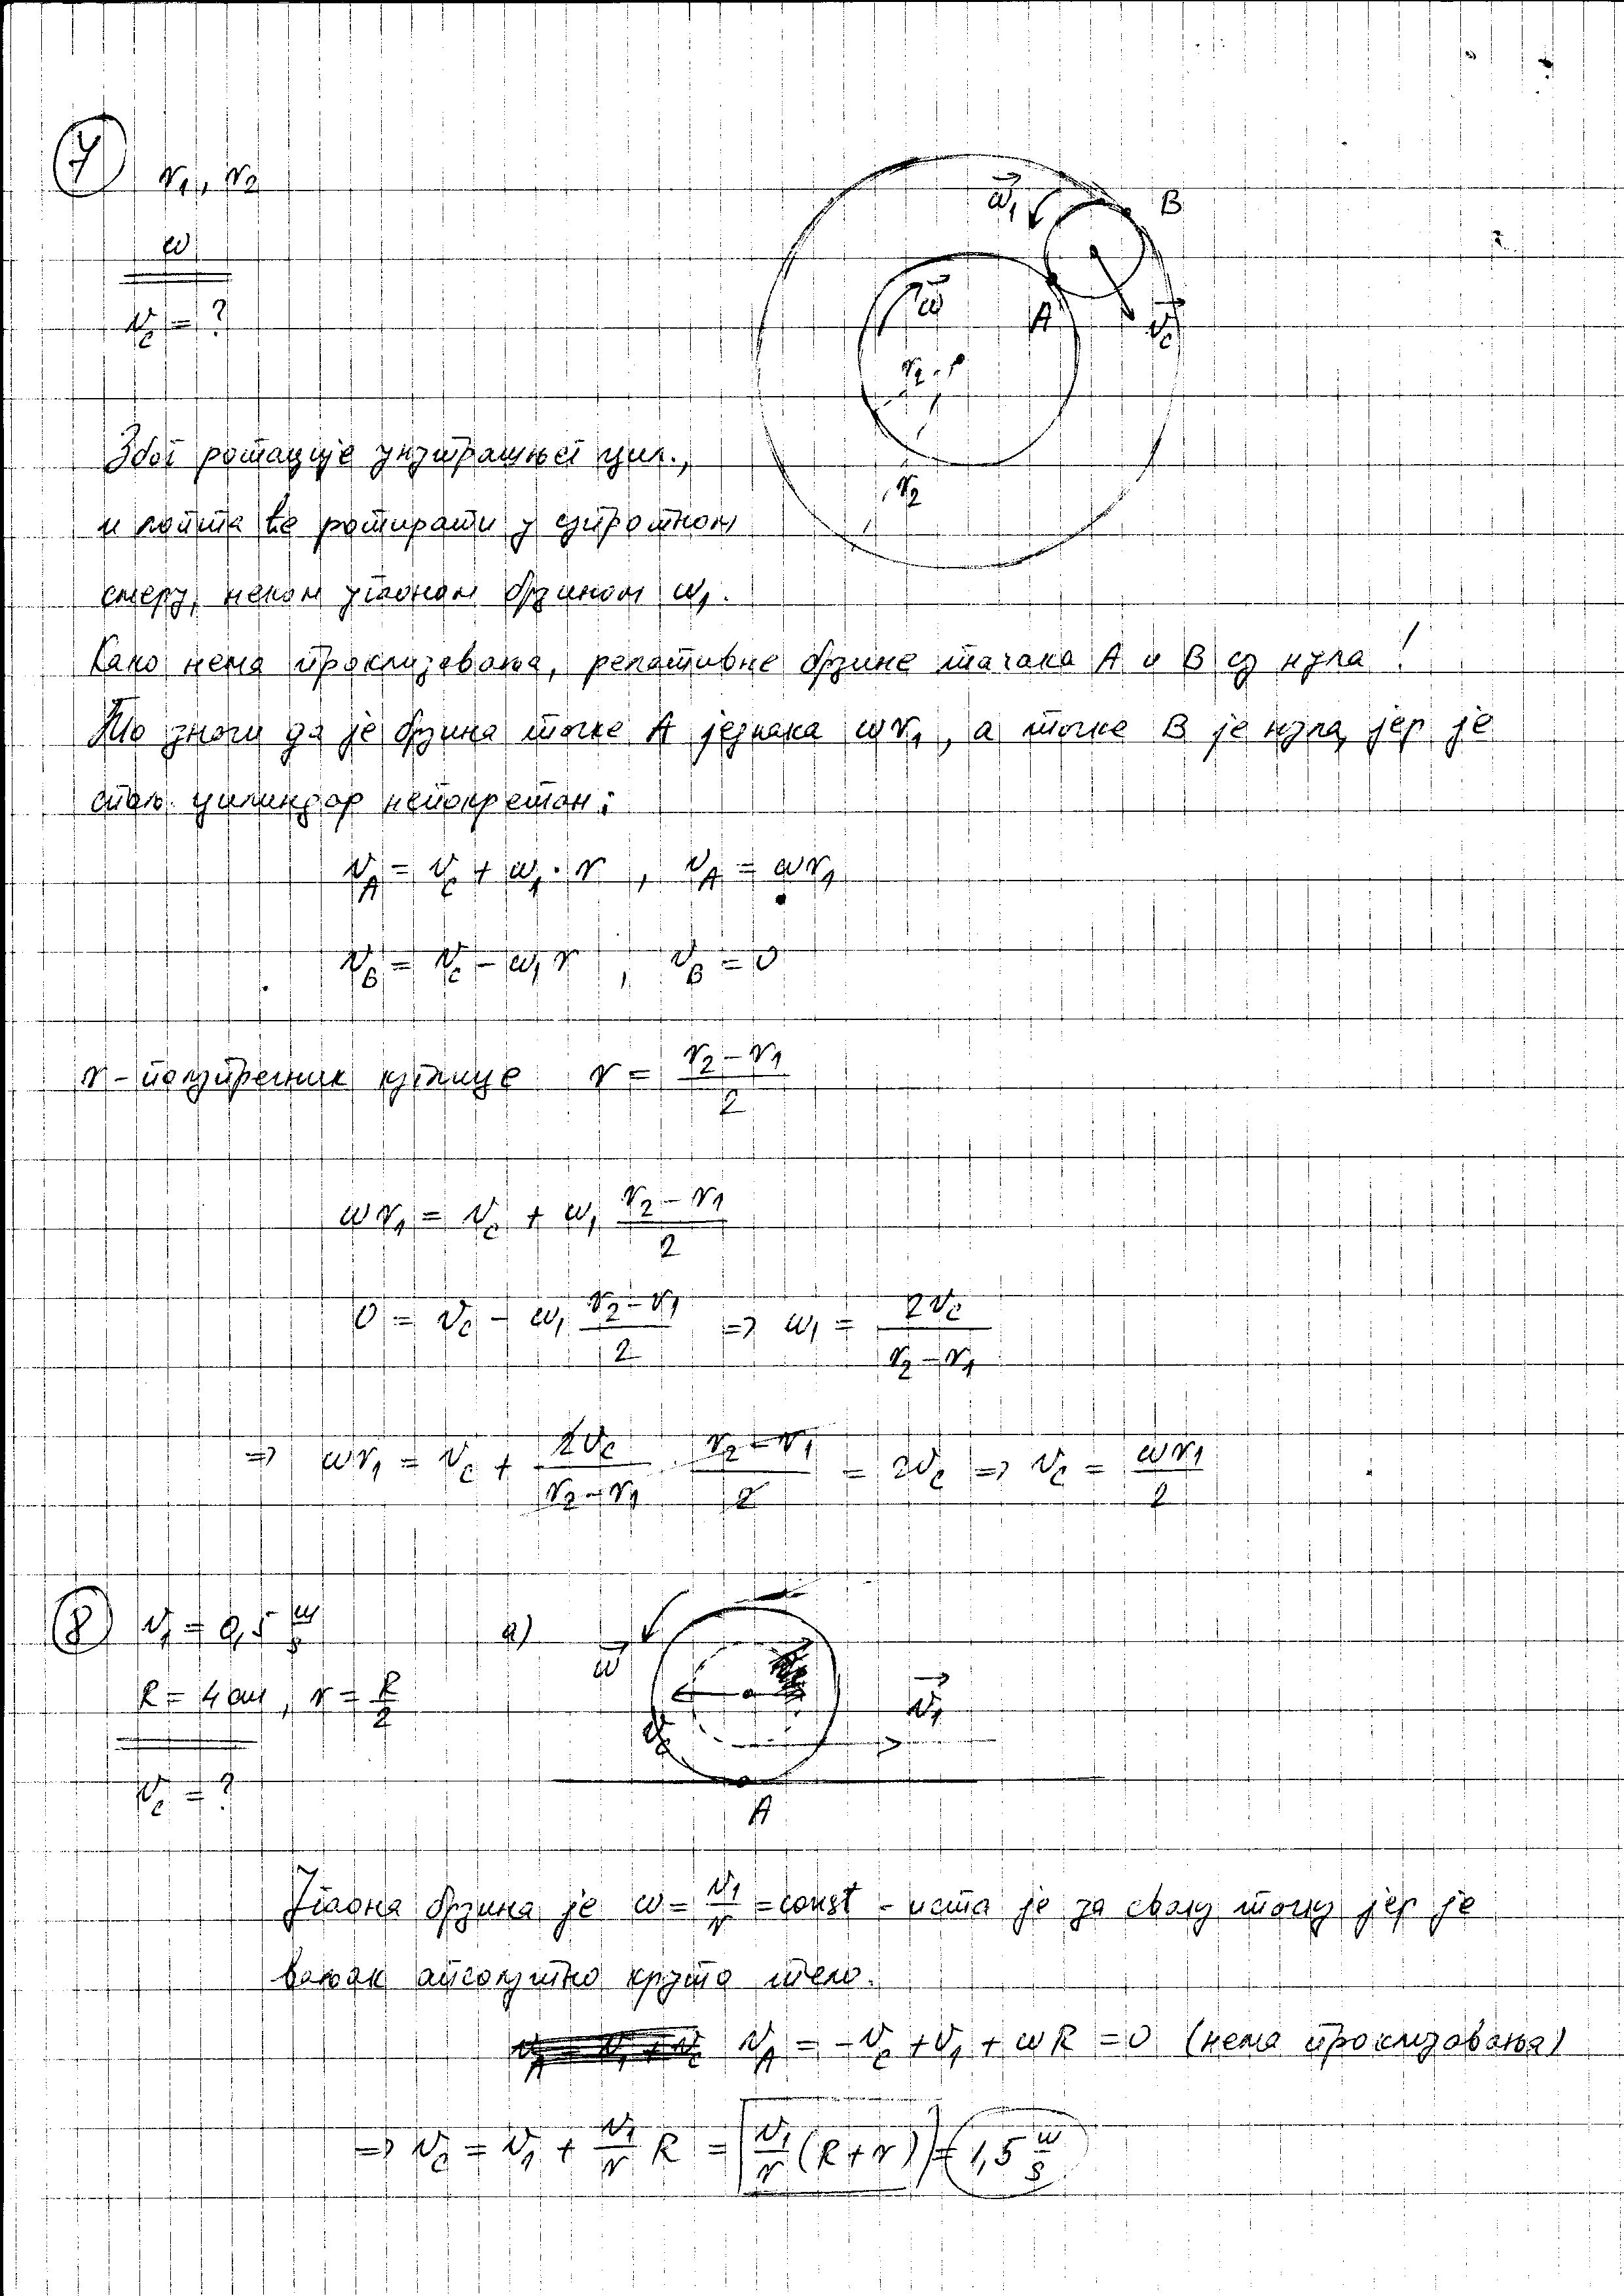 7
r₁, r₂
ω
v_c = ?
ω₁ B
ω A v_c
r₂
Због ротације унутрашњег цил.,
и лопта ће ротирати у супротном
смеру, неком угаоном брзином ω₁.
Како нема проклизавања, релативне брзине тачака A и B су нула!
То значи да је брзина тачке A једнака ωr₁, а тачке B је нула, јер је
цилиндар непокретан:
v_A = v_c + ω₁·r , v_A = ωr₁
v_B = v_c - ω₁r , v_B = 0
r - полупречник куглице r = (r₂ - r₁)/2
ωr₁ = v_c + ω₁ (r₂ - r₁)/2
0 = v_c - ω₁ (r₂ - r₁)/2 => ω₁ = 2v_c/(r₂ - r₁)
=> ωr₁ = v_c + 2v_c/(r₂ - r₁) · (r₂ - r₁)/2 = 2v_c => v_c = ωr₁/2
8 v₁ = 0,5 m/s а)
R = 4 cm, r = R/2
v_c = ?
ω v₁
v_c
A
Угаона брзина је ω = v₁/r = const - иста је за сваку тачку јер је
ваљак апсолутно круто тело.
v_A = -v_c + v₁ + ωR = 0 (нема проклизавања)
=> v_c = v₁ + v₁/r R = v₁/r (R + r) = 1,5 m/s